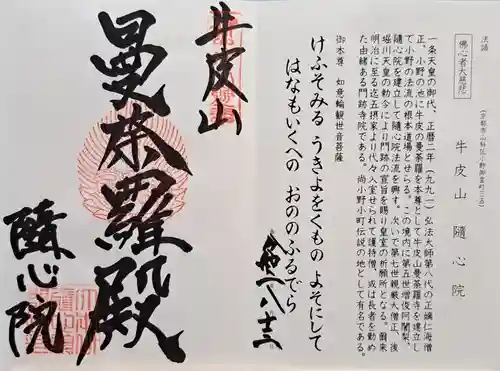 法話
佛心者大慈悲
(京都市山科区小野御霊町三五)
牛皮山 隨心院
一条天皇の御代、正暦二年(九九一)弘法大師第八代の正嫡仁海僧
正、小野の池に牛皮の曼荼羅を本尊として牛皮山曼荼羅寺を建立し
て小野の法流の根本道場とせらる。この境内に第五世増俊阿闍梨、
隨心院を建立して隨心院法流を興す。次いで第七世親厳大僧正、後
堀川天皇の勅令により門跡の宣旨を賜り皇室の祈願所となる。爾来
明治に至る迄五摂家より代々入室せられて護持僧、或は長者を勤め
た由緒ある門跡寺院である。尚小野小町伝説の地として有名である。
御本尊 如意輪観世音菩薩
けふそみる うきよをくもの よそにして
はなもいくへの おののふるでら
牛皮山
曼荼羅殿
隨心院